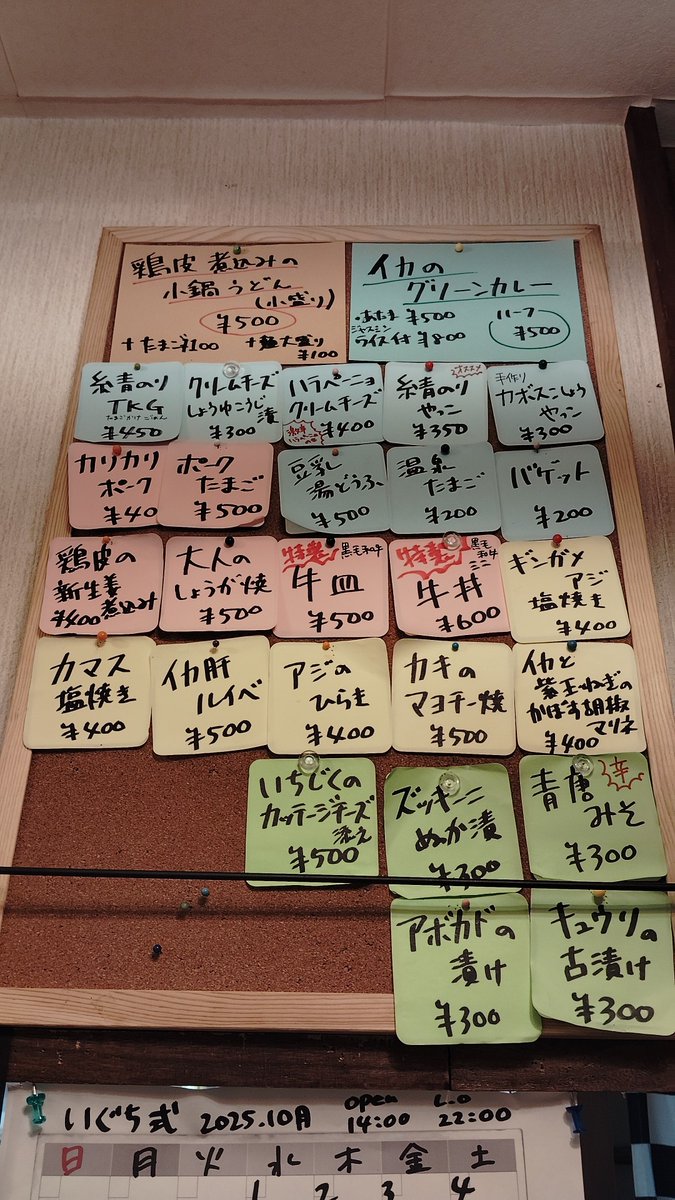 鶏皮 煮込みの
小鍋うどん
(小盛り)
¥500
+たまご¥100 +麺大盛り
¥100
イカの
グリーンカレー
・あたま ¥500
ジャスミン
ライス付 ¥800
ハーフ
¥500
糸青のり
TKG
たまごかけごはん
¥450
クリームチーズ
しょうゆこうじ
漬
¥300
ハラペーニョ
クリームチーズ
¥400
オススメ
糸青のり
やっこ
¥350
手作り
カボスこしょう
やっこ
¥300
カリカリ
ポーク
¥40
ポーク
たまご
¥500
豆乳
湯どうふ
¥500
温泉
たまご
¥200
バゲット
¥200
鶏皮の
新生姜
煮込み
¥400
大人の
しょうが焼
¥500
特製 黒毛和牛
牛皿
¥500
特製 黒毛和牛
ミニ
牛丼
¥600
ギンガメ
アジ
塩焼き
¥400
カマス
塩焼き
¥400
イカ肝
ルイベ
¥500
アジの
ひらき
¥400
カキの
マヨチー焼
¥500
イカと
紫玉ねぎの
かぼす胡椒
マリネ
¥400
いちじくの
カッテージチーズ
添え
¥500
ズッキーニ
ぬか漬
¥300
青唐 辛
みそ
¥300
アボカドの
漬け
¥300
キュウリの
古漬け
¥300
いぐち式 2025.10月 open 14:00 L.O 22:00
日 月 火 水 木 金 土
1 2 3 4